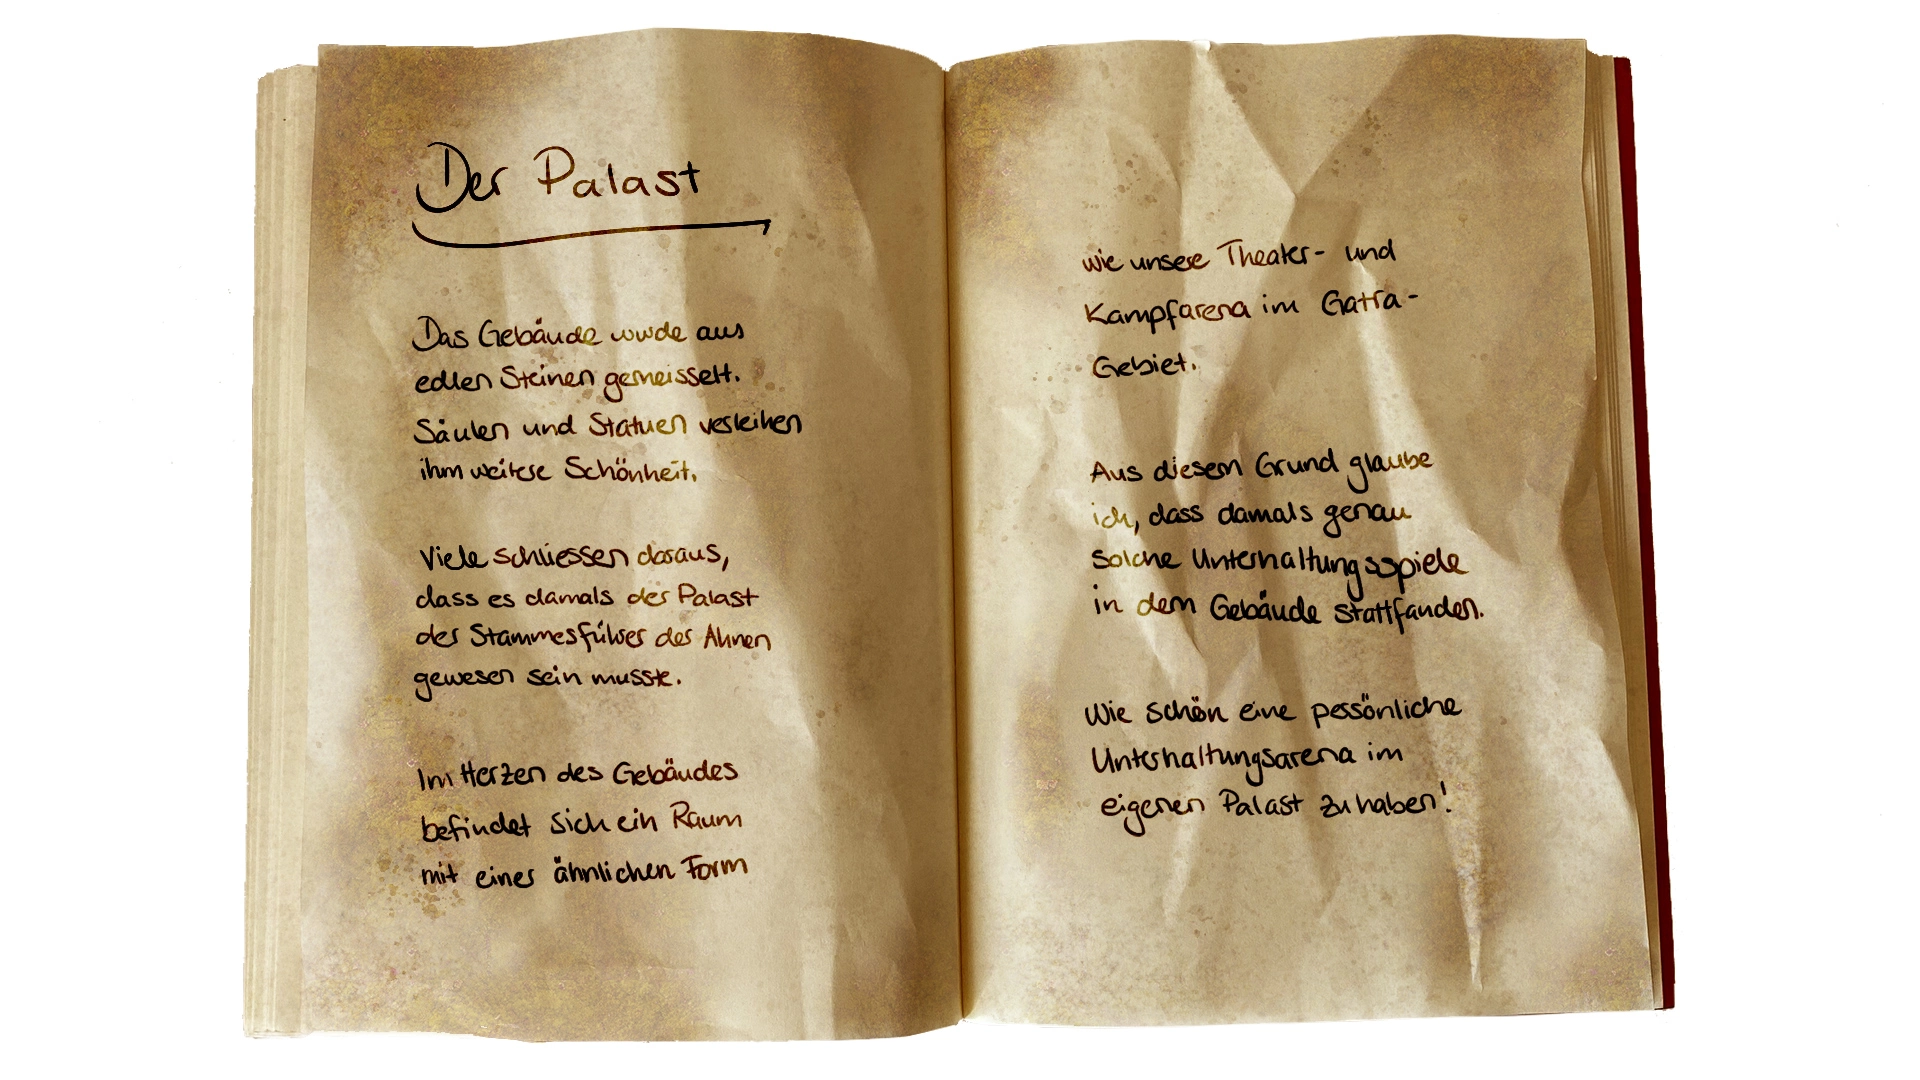 Der Palast
Das Gebäude wurde aus
edlen Steinen gemeisselt.
Säulen und Statuen verleihen
ihm weitere Schönheit.
Viele schliessen daraus,
dass es damals der Palast
der Stammesführer der Ahnen
gewesen sein musste.
Im Herzen des Gebäudes
befindet sich ein Raum
mit einer ähnlichen Form
wie unsere Theater- und
Kampfarena im Gatra-
Gebiet.
Aus diesem Grund glaube
ich, dass damals genau
solche Unterhaltungsspiele
in dem Gebäude stattfanden.
Wie schön eine persönliche
Unterhaltungsarena im
eigenen Palast zu haben!